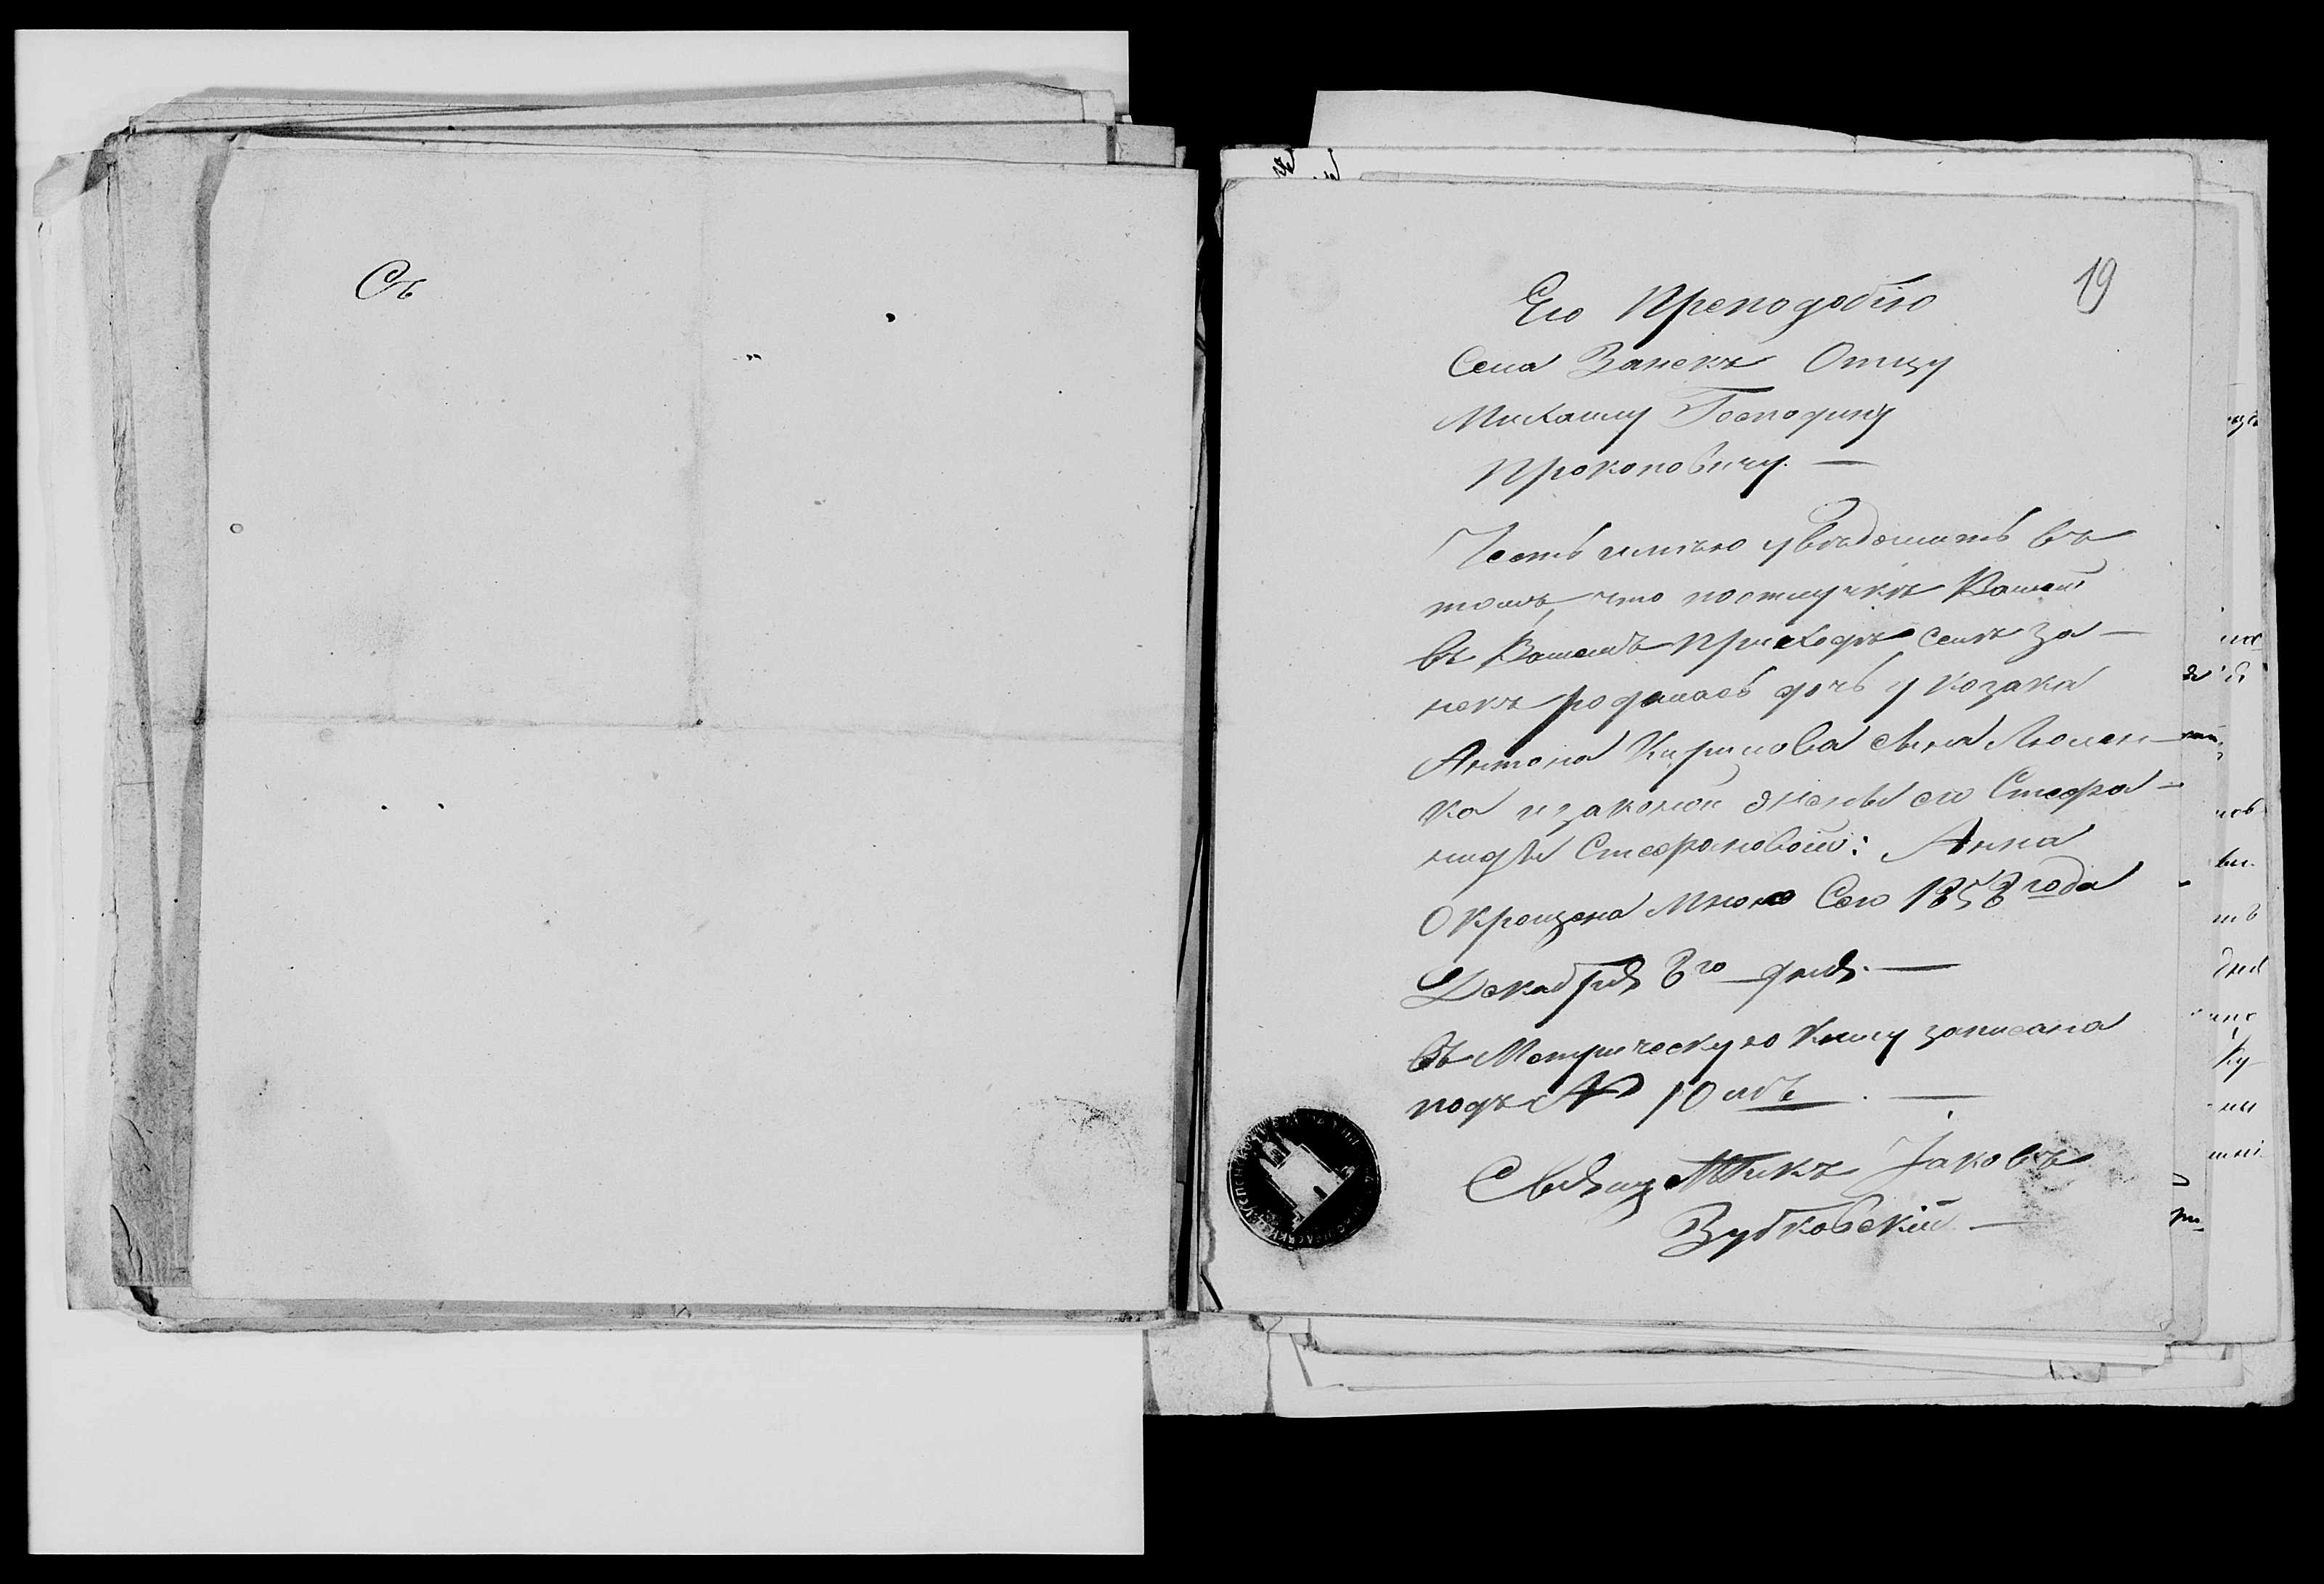 Съ
19
Его Преподобію
Села Занекъ Отцу
Михаилу Господину
Прокоповичу. —
Честь имѣю увѣдомить въ
томъ, что поотлучкѣ Вашей
въ Вашемъ приходѣ селѣ За-
некъ родилась дочь у козака
Антона Кирилова сына Люлен-
ка изаконой жены его Стефа-
ниды Стефановой: Анна
Окрещена Мною Сего 1858 года
Декабря 8го дня. —
Въ Метрическую Книгу записана
подъ № 10 мъ. —
Священникъ Іаковъ
Зубковскій —